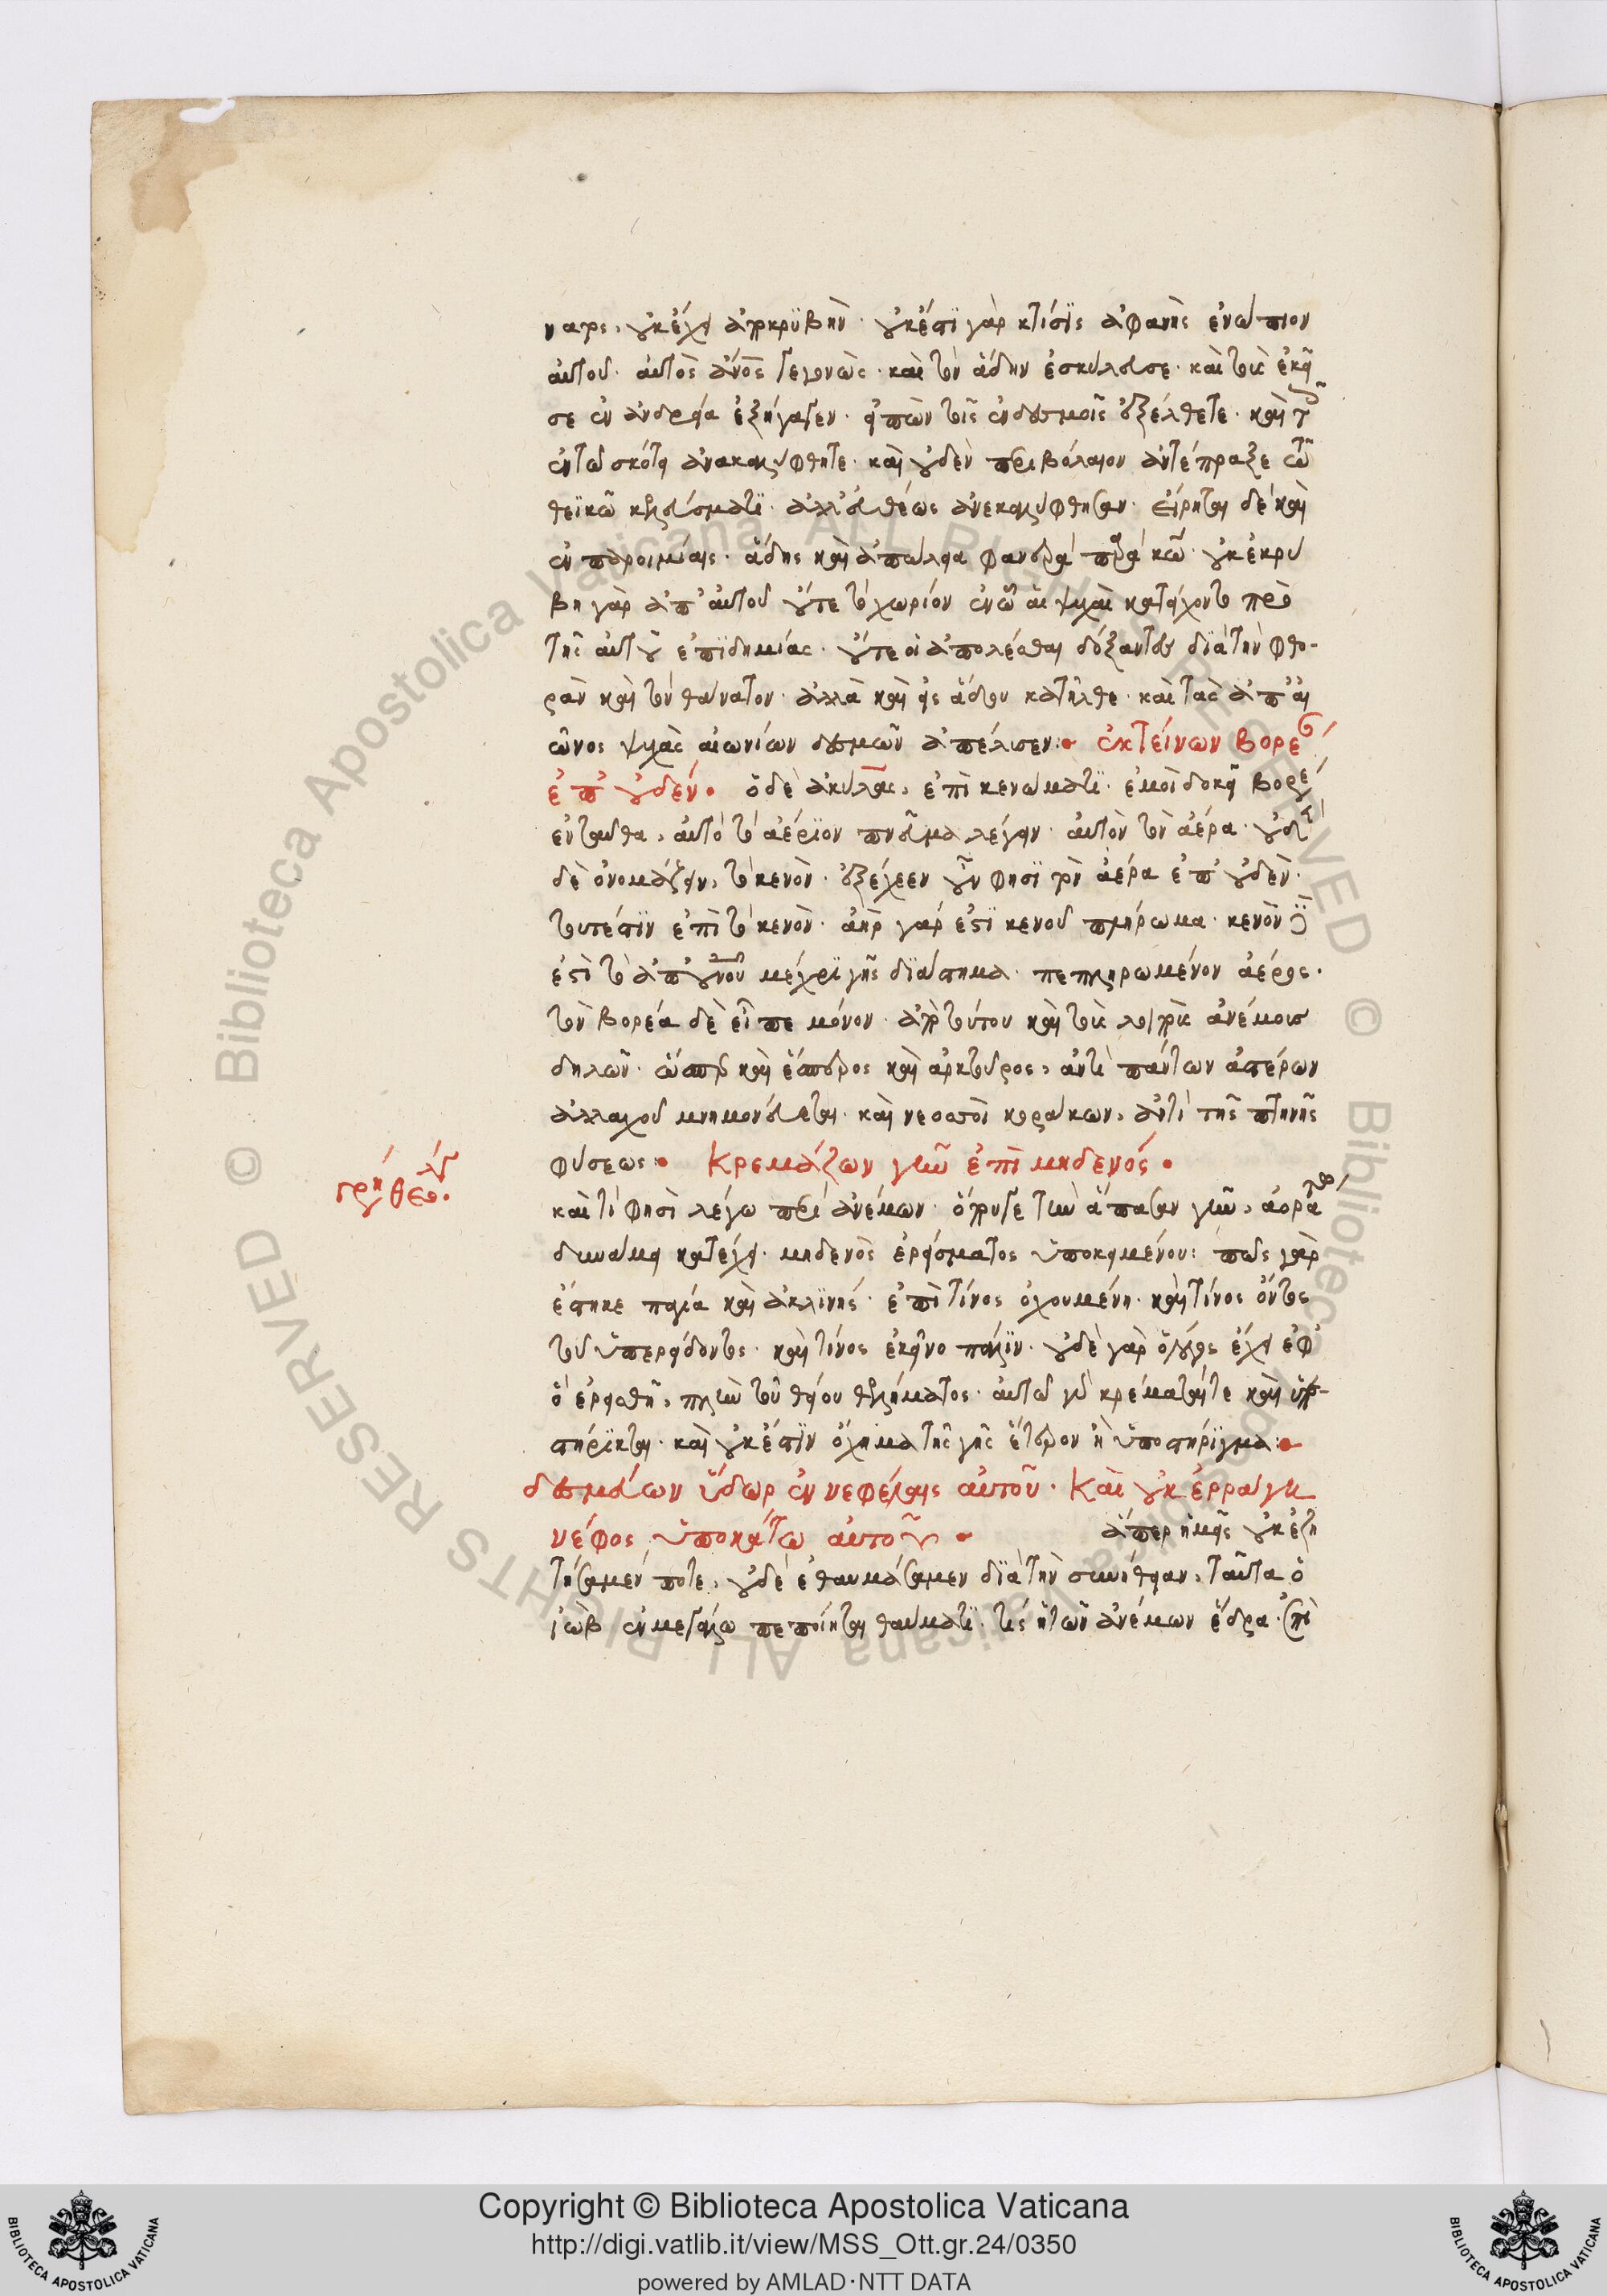 ναρς, οὐκ ἔχει ἀποκρυβήν. οὐκ ἔστι γὰρ κτίσις ἀφανὴς ἐνώπιον
αὐτοῦ. αὐτὸς ἄνος γεγονὼς. καὶ τὸν ἅδην ἐσκύλευσε. καὶ τοὺς ἐκεῖ
σε ἐν ἀνδρεία ἐξήγαγεν. εἰπὼν τοῖς ἐν δεσμοῖς ἐξέλθετε. καὶ τοῖς
ἐν τῶ σκότει ἀνακαλύφθητε. καὶ οὐδὲν περιβόλαιον ἀντέπραξε τῶ
θεϊκῶ κελεύσματι. ἀλλ' εὐθέως ἀνεκαλύφθησαν. εἴρηται δὲ καὶ
ἐν παροιμίαις. ἅδης καὶ ἀπώλεια φανερὰ παρὰ κῶ. οὐκ ἐκρύ
βη γὰρ ἀπ' αὐτοῦ οὔτε τὸ χωρίον ἐν ὧ αἱ ψυχαὶ κατείχοντο πρὸ
τῆς αὐτοῦ ἐπιδημίας. οὔτε οἱ ἀπολέσθαι δόξαντες διὰ τὴν φθο-
ρὰν καὶ τὸν θάνατον. ἀλλὰ καὶ εἰς ἅδου κατῆλθε. καὶ τὰς ἀπ' αἰ
ῶνος ψυχὰς αἰωνίων δεσμῶν ἀπέλυσεν. ἐκτείνων βορέ
ἐπ' οὐδέν. ὁ δὲ ἀκύλας, ἐπὶ κενώματι. ἐμοὶ δοκεῖ βορέ
ἐνταῦθα, αὐτὸ τὸ ἀέριον πνεῦμα λέγειν. αὐτὸν τὸν ἀέρα. οὐδὲν
δὲ ὀνομάζειν, τὸ κενὸν. ἐξέχεεν οὖν φησι τὸν ἀέρα ἐπ' οὐδὲν.
τουτέστιν ἐπὶ τὸ κενὸν. ἀὴρ γάρ ἐστι κενοῦ πλήρωμα. κενὸν δὲ
ἐστὶ τὸ ἀπ' οὐνοῦ μέχρι γῆς διάστημα. πεπληρωμένον ἀέρος.
τὸν βορέα δὲ εἶπε μόνον. ἀπὸ τούτου καὶ τοὺς λοιποὺς ἀνέμους
δηλῶν. ὥσπερ καὶ ἕσπερος καὶ ἀρκτοῦρος, ἀντὶ πάντων ἀστέρων
ἀλλαχοῦ μνημονεύεται. καὶ νεοσσοὶ κοράκων, ἀντὶ τῆς πτηνῆς
φύσεως. Κρεμάζων γῆν ἐπὶ μηδενός.
καὶ τί φησὶ λέγω περὶ ἀνέμων. ὅπουγε τὴν ἅπασαν γῆν, ἀορά
δυνάμει κατέχει. μηδενὸς ἐρείσματος ὑποκειμένου. πῶς γὰρ
ἕστηκε παγία καὶ ἀκλινής. ἐπὶ τίνος ὀχουμένη. καὶ τίνος ὄντος
τοῦ ὑπερείδοντος. καὶ τίνος ἐκεῖνο πάλιν. οὐδὲ γὰρ ὁ λόγος ἔχει ἐφ'
ὃ ἐρεισθῆ, πλὴν τοῦ θείου θελήματος. αὐτῶ γὰρ κρέματαί τε καὶ ὑπο-
στήρικται. καὶ οὐκ ἔστιν ὄχημα τῆς γῆς ἕτερον ἢ ὑποστήριγμα.
δεσμεύων ὕδωρ ἐν νεφέλαις αὐτοῦ. Καὶ οὐκ ἐρράγη
νέφος ὑποκάτω αὐτοῦ. ἅπερ ἡμεῖς οὐκ ἐζη
τήσαμέν ποτε, οὐδὲ ἐθαυμάσαμεν διὰ τὴν συνήθειαν, ταῦτα ὁ
ἰὼβ ἐν μεγάλω πεποίηται θαύματι. τίς ἡ τῶν ἀνέμων ἕδρα. ἐπὶ